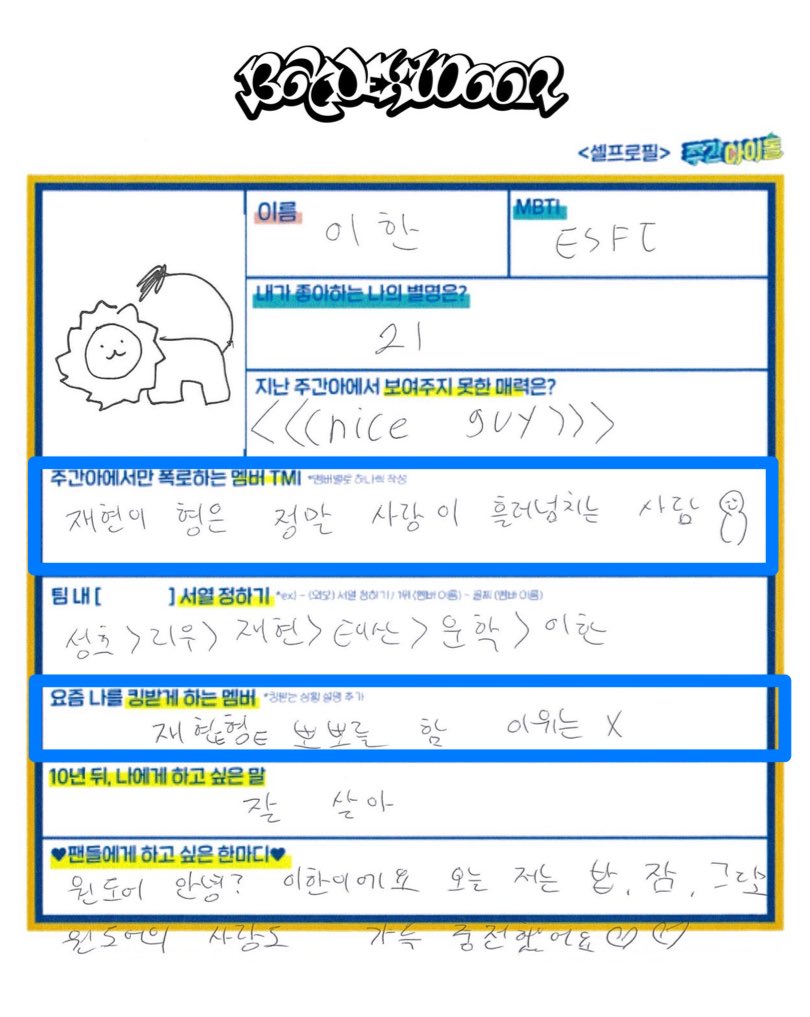 BOYNEXTDOOR
<셀프로필> 주간아이돌
이름
이한
MBTI
ESFI
내가 좋아하는 나의 별명은?
21
지난 주간아에서 보여주지 못한 매력은?
<<<nice guy>>>
주간아에서만 폭로하는 멤버 TMI *멤버별로 하나씩 작성
재현이 형은 정말 사랑이 흘러넘치는 사람
팀 내 [ ] 서열 정하기 *ex) - (외모) 서열 정하기 / 1위 (멤버 이름) - 꼴찌 (멤버 이름)
성호>리우>재현>태산>운학>이한
요즘 나를 킹받게 하는 멤버 *킹받는 상황 설명 추가
재현형 뽀뽀를 함 이위는 X
10년 뒤, 나에게 하고 싶은 말
잘 살아
♥팬들에게 하고 싶은 한마디♥
원도어 안녕? 이한이에요 오늘 저는 밥, 잠, 그리고
원도어의 사랑도 가득 충전했어요♡♡